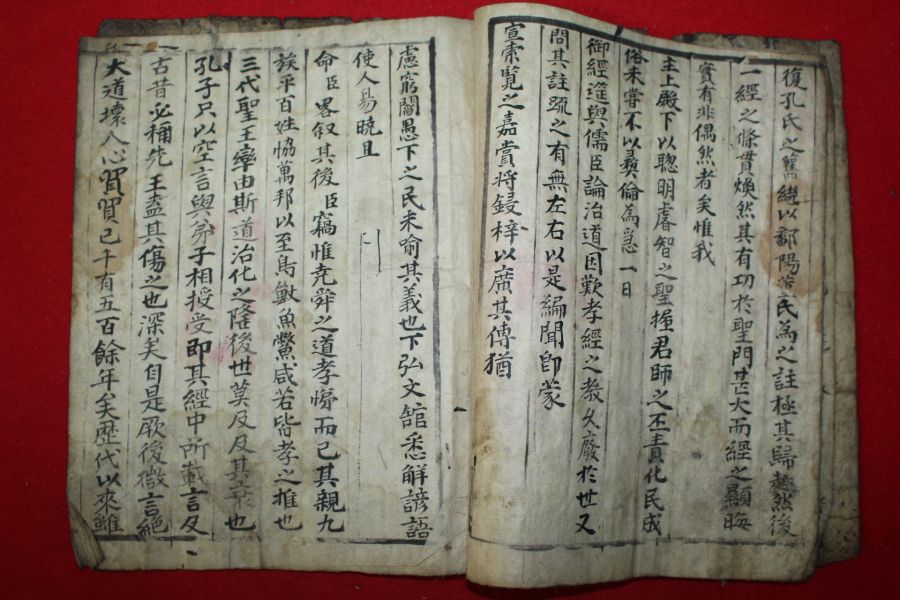 復孔氏之舊繼以鄱陽董氏為之註極其歸趣然後
一經之條貫煥然其有功於聖門甚大而經之顯晦
實有非偶然者矣惟我
主上殿下以聰明睿智之聖握君師之丕責化民成
俗未嘗不以彛倫為急一日
御經筵與儒臣論治道因歎孝經之敎久廢於世又
問其註疏之有無左右以是編聞卽蒙
宣索覽之嘉賞將鋟梓以廣其傳猶
慮窮閻愚下之民未喩其義也下弘文館悉觧諺語
使人易曉且
命臣畧叙其後臣竊惟尭舜之道孝悌而已其親九
族平百姓恊萬邦以至鳥獸魚鱉咸若皆孝之推也
三代聖王率由斯道治化之隆後世莫及及其衰也
孔子只以空言與弟子相授受即其經中所載言及
古昔必稱先王盖其傷之也深矣自是厥後微言絶
大道壞人心習習已千有五百餘年矣歷代以來雖